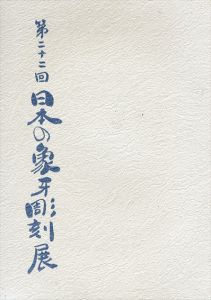 第二十二回
日本の象牙彫刻展